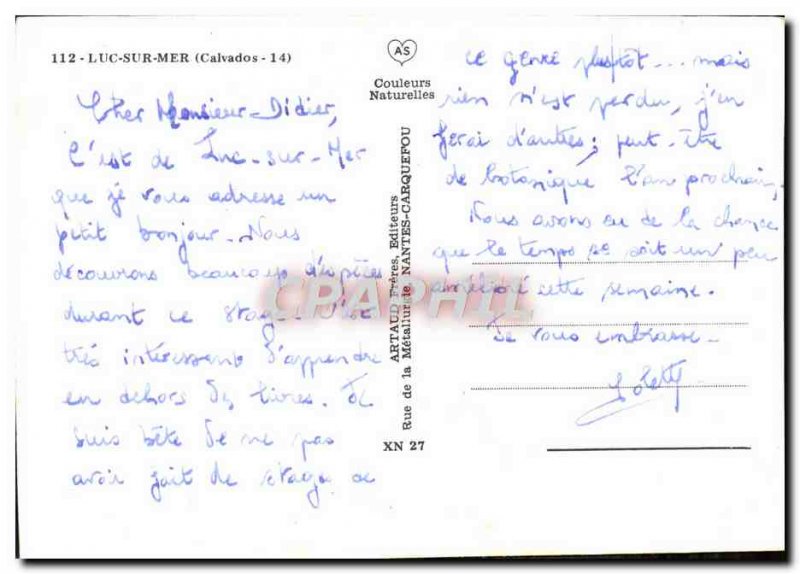 112 - LUC-SUR-MER (Calvados - 14)
Cher Monsieur Didier,
C'est de Luc-sur-Mer
que je vous adresse un
petit bonjour. Nous
découvrons beaucoup
durant ce stage. C'est
très intéressant d'apprendre
en dehors des livres. Je
suis bête de ne pas
avoir fait de stage de
AS
Couleurs
Naturelles
ARTAUD Frères, Editeurs
Rue de la Métallurgie, NANTES-CARQUEFOU
XN 27
CPAPHIL
ce genre plustôt... mais
rien n'est perdu, j'en
ferai d'autres; peut-être
de botanique l'an prochain.
Nous avons eu de la chance
que le temps se soit un peu
amélioré cette semaine.
Je vous embrasse.